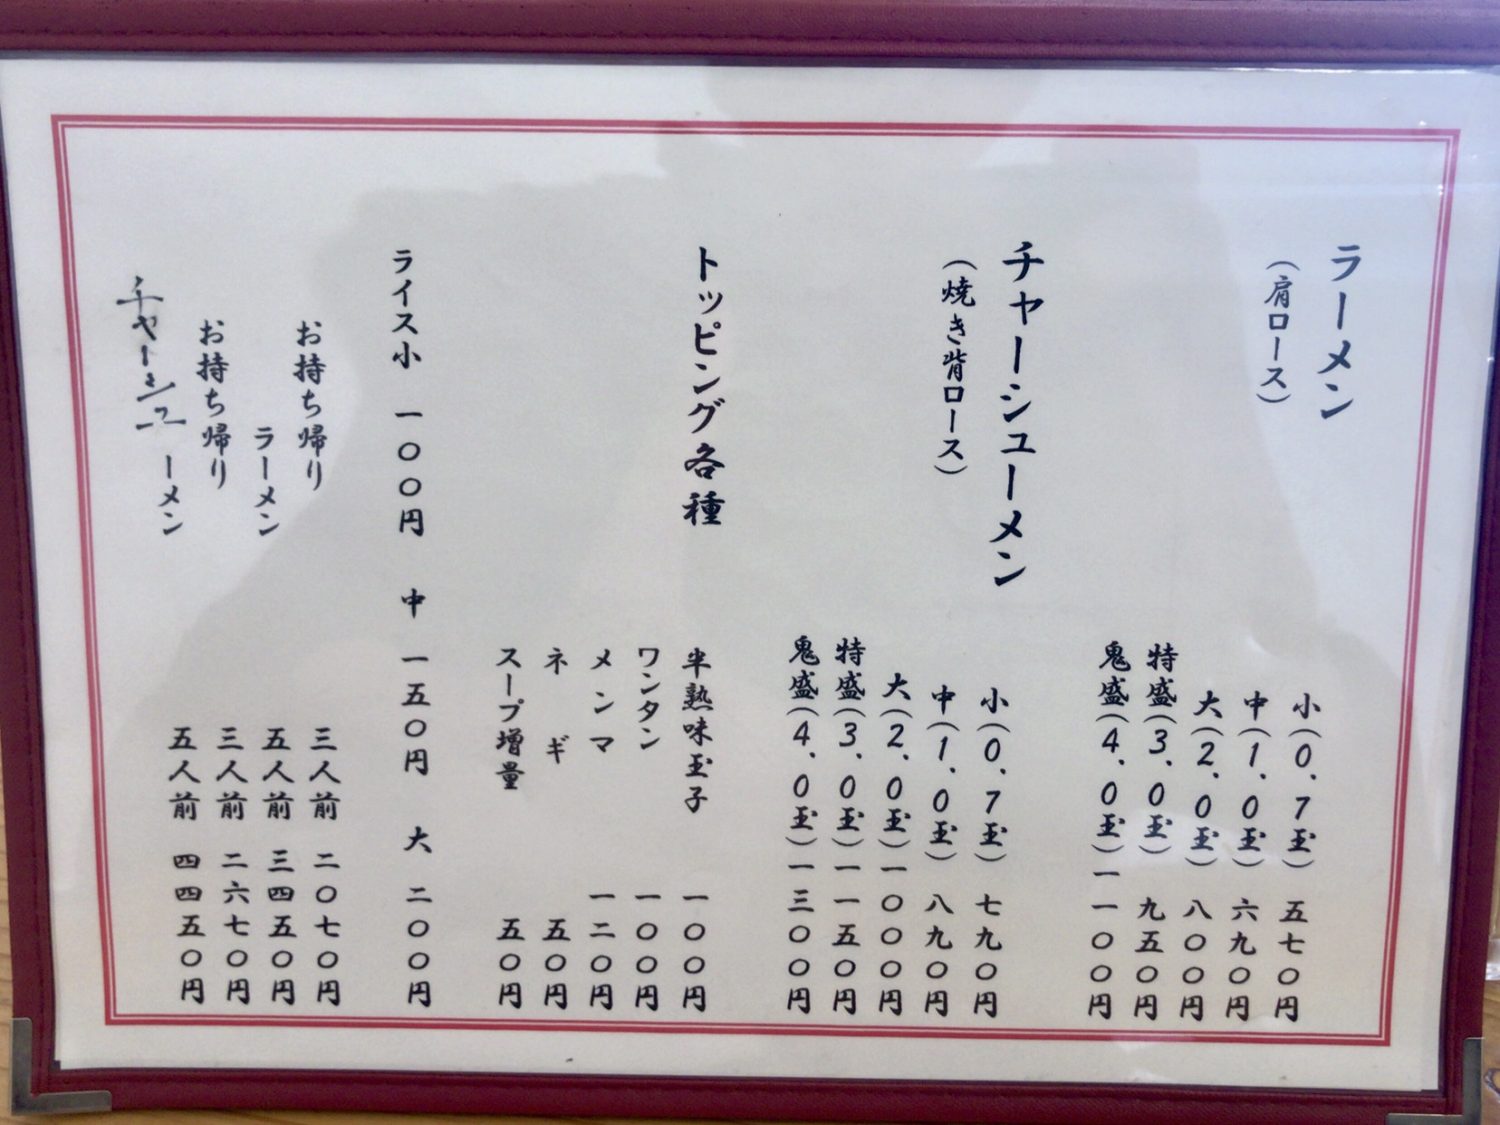 ラーメン
(肩ロース)
小(0.7玉) 五七〇円
中(1.0玉) 六九〇円
大(2.0玉) 八〇〇円
特盛(3.0玉) 九五〇円
鬼盛(4.0玉) 一一〇〇円
チャーシューメン
(焼き背ロース)
小(0.7玉) 七九〇円
中(1.0玉) 八九〇円
大(2.0玉) 一〇〇〇円
特盛(3.0玉) 一一五〇円
鬼盛(4.0玉) 一三〇〇円
トッピング各種
半熟味玉子 一〇〇円
ワンタン 一〇〇円
メンマ 一二〇円
ネギ 五〇円
スープ増量 五〇円
ライス小 一〇〇円 中 一五〇円 大 二〇〇円
お持ち帰り 三人前 二〇七〇円
ラーメン 五人前 三四五〇円
お持ち帰り 三人前 二六七〇円
チャーシューメン 五人前 四四五〇円